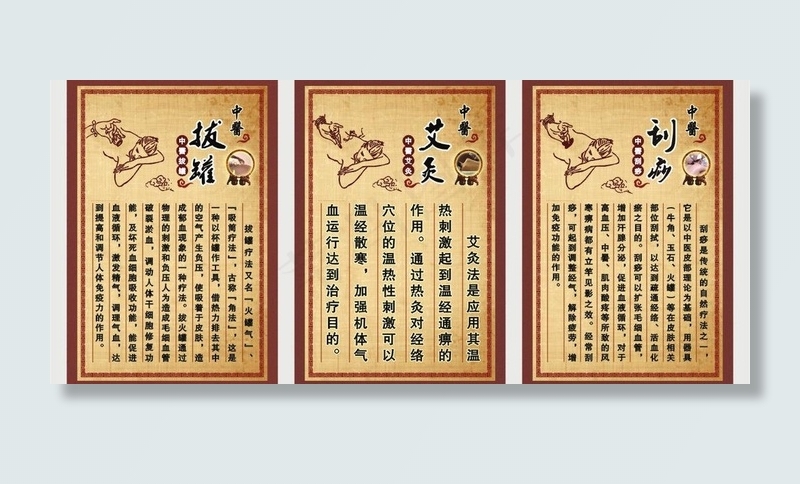 中醫
拔罐
中醫拔罐
拔罐疗法又名「火罐气」、
「吸筒疗法」，古称「角法」，这是
一种以杯罐作工具，借热力排去其中
的空气产生负压，使吸着于皮肤，造
成郁血现象的一种疗法。拔火罐通过
物理的刺激和负压人为造成毛细血管
破裂淤血，调动人体干细胞修复功
能，及坏死血细胞吸收功能，能促进
血液循环，激发精气，调理气血，达
到提高和调节人体免疫力的作用。
中醫
艾灸
中醫艾灸
艾灸法是应用其温
热刺激起到温经通痹的
作用。通过热灸对经络
穴位的温热性刺激可以
温经散寒，加强机体气
血运行达到治疗目的。
中醫
刮痧
中醫刮痧
刮痧是传统的自然疗法之一，
它是以中医皮部理论为基础，用器具
（牛角、玉石、火罐）等在皮肤相关
部位刮拭，以达到疏通经络、活血化
瘀之目的。刮痧可以扩张毛细血管，
增加汗腺分泌，促进血液循环，对于
高血压、中暑、肌肉酸疼等所致的风
寒痹病都有立竿见影之效。经常刮
痧，可起到调整经气，解除疲劳，增
加免疫功能的作用。